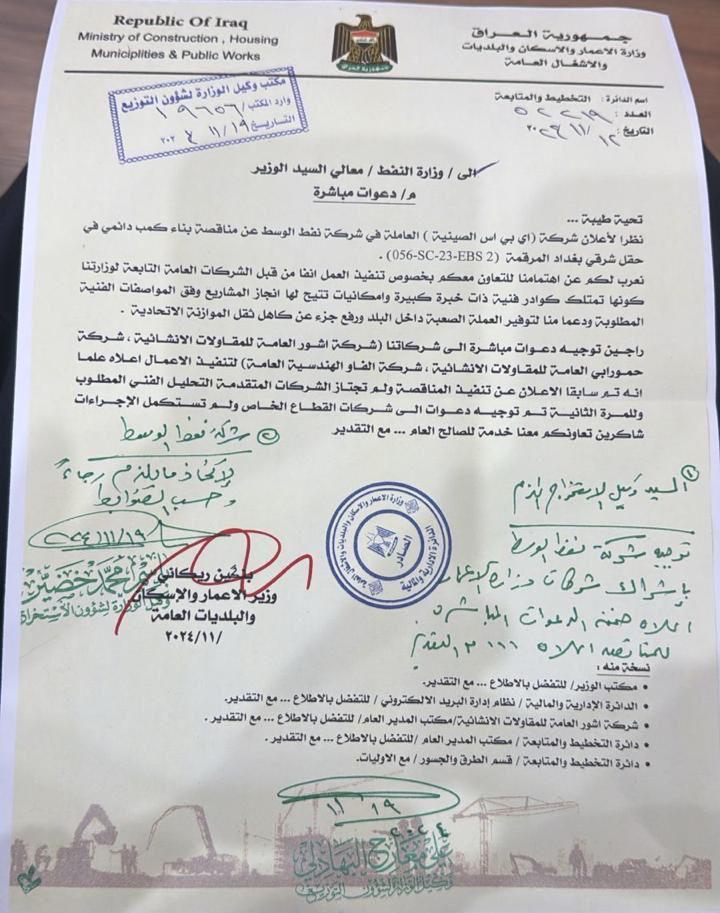 Republic Of Iraq
Ministry of Construction , Housing
Municiplities & Public Works
جمهورية العراق
وزارة الاعمار والاسكان والبلديات
والاشغال العامة
جمهورية العراق
مكتب وكيل الوزارة لشؤون التوزيع
وارد المكتب / ١٩٦٥٦
التاريخ ١٩ / ١١ / ٢٠٢٤
اسم الدائرة : التخطيط والمتابعة
العدد : ٥٢٢١٩
التاريخ : ١٢ / ١١ / ٢٠٢٤
الى / وزارة النفط / معالي السيد الوزير
م/ دعوات مباشرة
تحية طيبة ...
نظرا لأعلان شركة (اي بي اس الصينية ) العاملة في شركة نفط الوسط عن مناقصة بناء كمب دائمي في
حقل شرقي بغداد المرقمة (056-SC-23-EBS 2) .
نعرب لكم عن اهتمامنا للتعاون معكم بخصوص تنفيذ العمل انفا من قبل الشركات العامة التابعة لوزارتنا
كونها تمتلك كوادر فنية ذات خبرة كبيرة وامكانيات تتيح لها انجاز المشاريع وفق المواصفات الفنية
المطلوبة ودعما منا لتوفير العملة الصعبة داخل البلد ورفع جزء عن كاهل ثقل الموازنة الاتحادية .
راجين توجيه دعوات مباشرة الى شركاتنا (شركة اشور العامة للمقاولات الانشائية ، شركة
حمورابي العامة للمقاولات الانشائية ، شركة الفاو الهندسية العامة) لتنفيذ الاعمال اعلاه علما
انه تم سابقا الاعلان عن تنفيذ المناقصة ولم تجتاز الشركات المتقدمة التحليل الفني المطلوب
وللمرة الثانية تم توجيه دعوات الى شركات القطاع الخاص ولم تستكمل الإجراءات
شاكرين تعاونكم معنا خدمة للصالح العام ... مع التقدير
① السيد وكيل الاستخراج المحترم
توجيه شركة نفط الوسط
بإشراك شركات وزارة الاعمار
اعلاه ضمن الدعوات المباشرة
للمناقصة اعلاه مع التقدير
② شركة نفط الوسط
لإتخاذ ما يلزم رجاءً
وحسب الضوابط
٢٠٢٤/١١/١٩
محمد خضير
وكيل الوزارة لشؤون الاستخراج
وزارة الاعمار والاسكان والبلديات والاشغال العامة
الدائرة الادارية والمالية
الصادر
بنكين ريكاني
وزير الاعمار والاسكان
والبلديات العامة
/٢٠٢٤/١١
نسخة منه :
• مكتب الوزير/ للتفضل بالاطلاع ... مع التقدير.
• الدائرة الإدارية والمالية / نظام إدارة البريد الالكتروني / للتفضل بالاطلاع ... مع التقدير.
• شركة اشور العامة للمقاولات الانشائية/مكتب المدير العام/ للتفضل بالاطلاع ... مع التقدير .
• دائرة التخطيط والمتابعة / مكتب المدير العام /للتفضل بالاطلاع ... مع التقدير .
• دائرة التخطيط والمتابعة / قسم الطرق والجسور / مع الاوليات.
١١/١٩
٢٠٢٤
علي معارج البهادلي
وكيل الوزارة لشؤون التوزيع